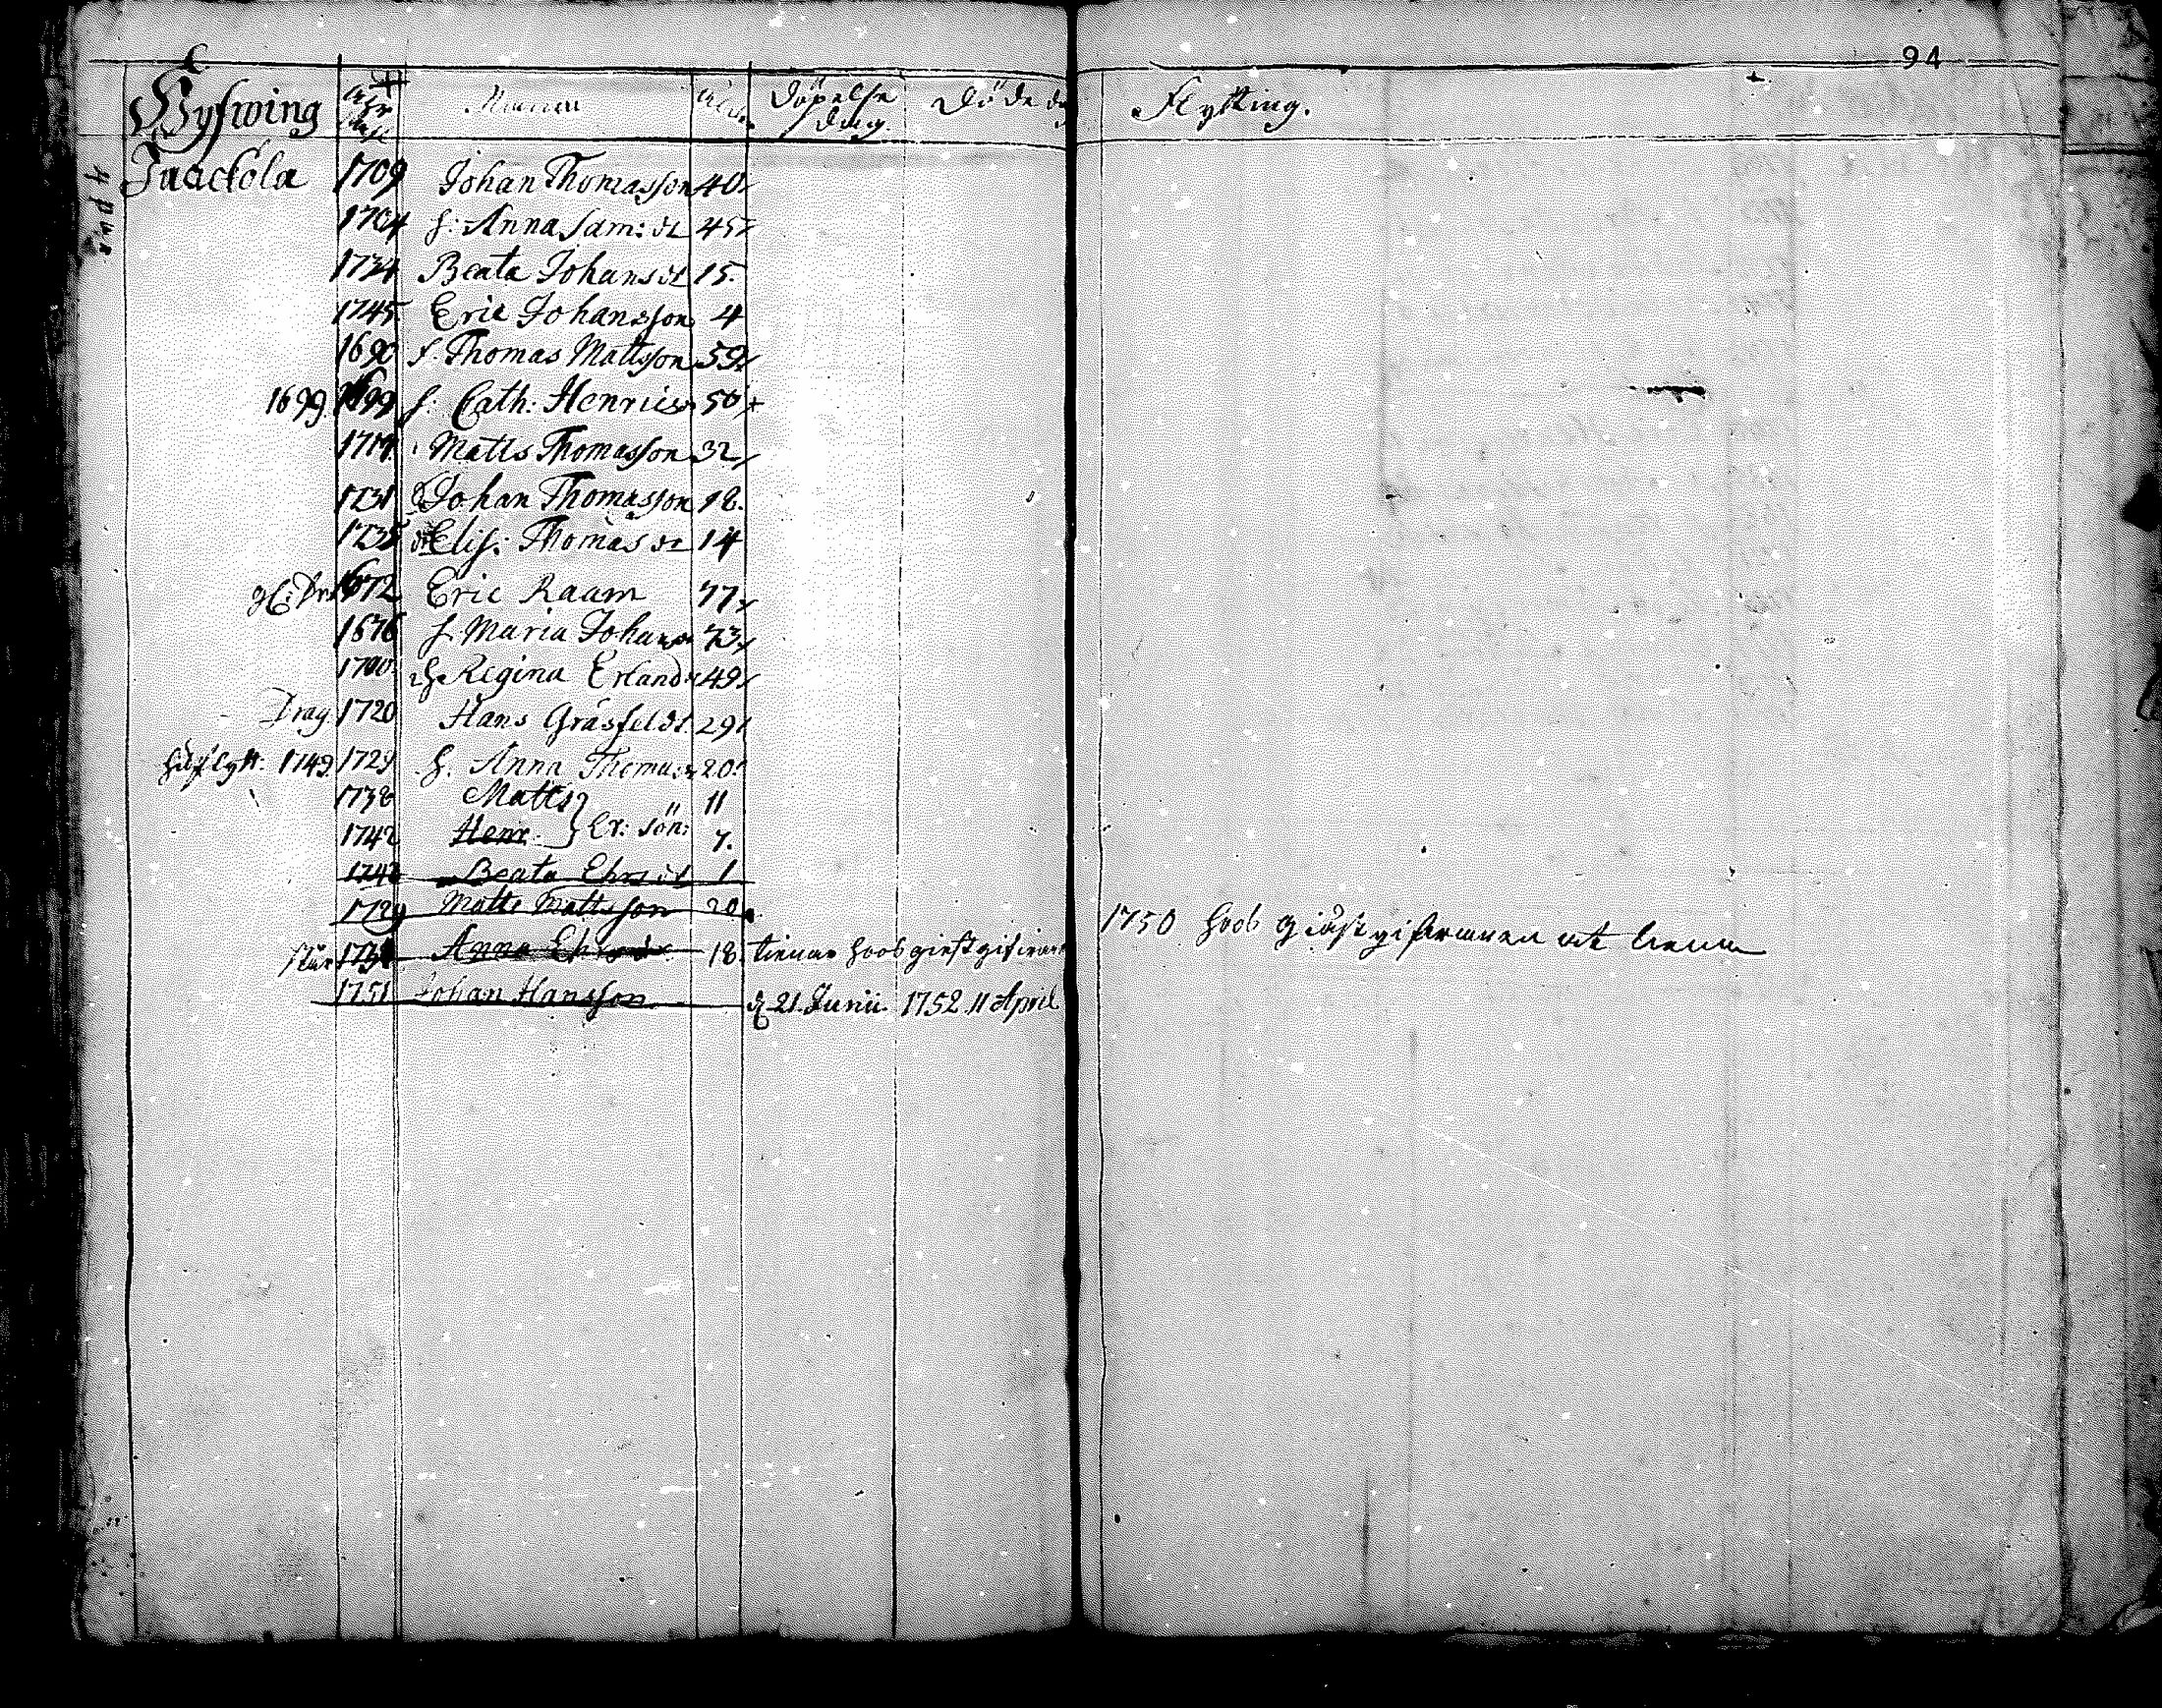 94
Namn Döpelse dag. Döde da Flytting.
Jaackola 1709 Johan Thomasson 40
4 1704 h: Anna Sam: dt 45
1734 Beata Johans dt 15.
1745 Eric Johansson 4
1690 Thomas Mattsson 59
1699 1699 h: Cath: Henrics 50
Matts Thomasson 32
1731 Johan Thomasson 18.
1735 Elis: Thomas dt 14
1672 Eric Raam 77
1676 h Maria Johans 73
1700 Regina Erland 49
Drag 1720 Hans Gräsfeldt 29
1749 1729 h. Anna Thomas 20
1738 Matts 11
1742 Henr. } Er: sön: 7.
1748 Beata Ehrs dt 1
1729 Matts Mattsson 20
1731 Anna Ehrs dt 18. tienar hoos giestgifvaren 1750 hoos giästgifvaren at tiena
1751 Johan Hansson d. 21. Junii. 1752. 11 April